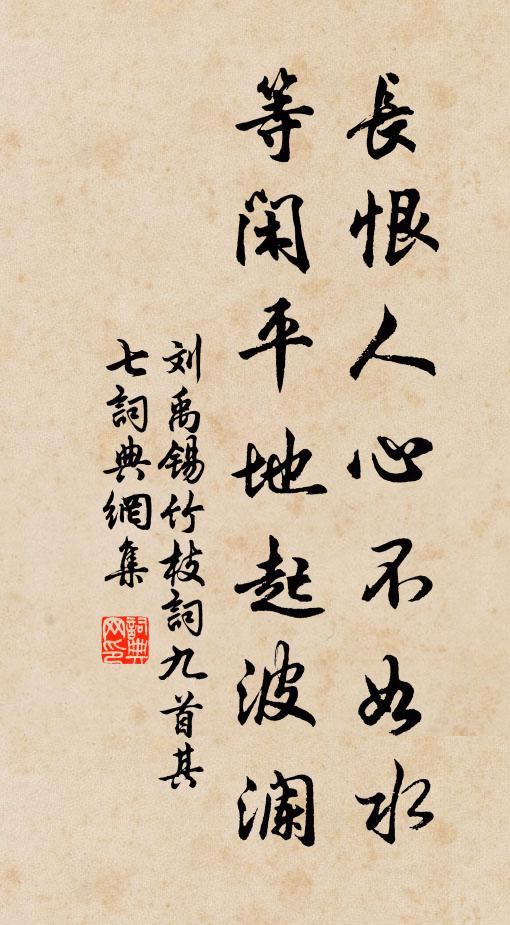 長恨人心不如水
等閑平地起波瀾
刘禹錫竹枝詞九首其
七詞典網集
詞典网印